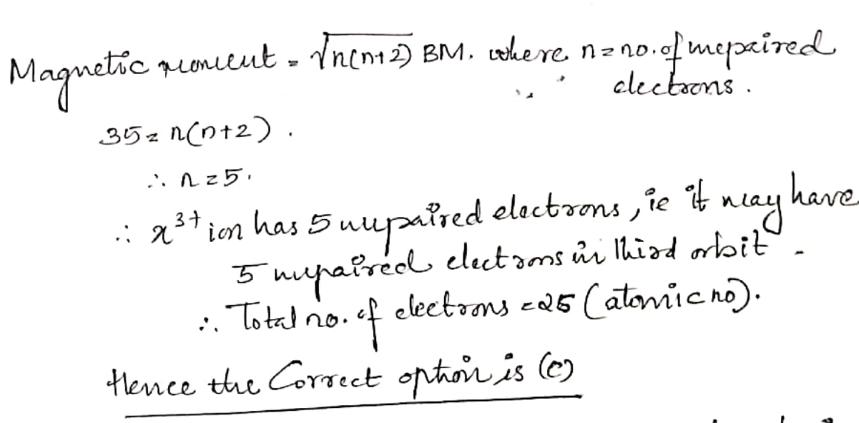 Magnetic moment = √n(n+2) BM. where n = no. of unpaired
electrons.
35 = n(n+2).
∴ n = 5.
∴ x³⁺ ion has 5 unpaired electrons, ie it may have
5 unpaired electrons in third orbit.
∴ Total no. of electrons = 25 (atomic no).
Hence the Correct option is (c)